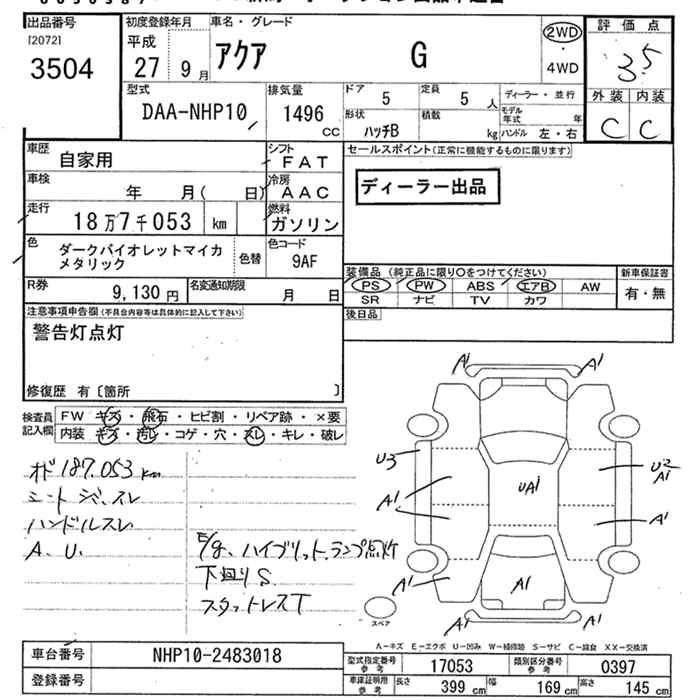 出品番号
[2072]
3504
初度登録年月
平成
27 9月
車名・グレード
アクア G
2WD
・
4WD
評価点
3.5
外装 内装
C C
型式
DAA-NHP10
排気量
1496
CC
ドア
5
定員
5 人
形状
ハッチB
積載
kg
ディーラー・並行
モデル年式 年
ハンドル 左・右
車歴
自家用
シフト
FAT
車検
年 月( 日)
冷房
AAC
走行
18万7千053 km
燃料
ガソリン
色
ダークバイオレットマイカ
メタリック
色替
色コード
9AF
R券
9,130円
名変通知期限
月 日
セールスポイント(正常に機能するものに限ります)
ディーラー出品
装備品(純正品に限り○をつけてください)
PS PW ABS エアB AW
SR ナビ TV カワ
新車保証書
有・無
後日品
注意事項申告欄(不具合内容等は具体的に記入して下さい)
警告灯点灯
修復歴 有〔箇所 〕
検査員
記入欄
FW キズ・飛石・ヒビ割・リペア跡・×要
内装 キズ・汚レ・コゲ・穴・スレ・キレ・破レ
オド 187.053 km
シート シミ.スレ
ハンドルスレ
A. U.
E/g、ハイブリットランプ点灯
下廻りS
スタットレスT
A1 A1
U3
U2
A1
A1
UA1
A1
A1
A1
A1 A1
スペア
A-キズ E-エクボ U-凹み W-補修跡 S-サビ C-腐食 XX-交換済
車台番号
NHP10-2483018
登録番号
型式指定番号
参考
17053
類別区分番号
参考
0397
車庫証明用
参考
長さ 399 cm 幅 169 cm 高さ 145 cm